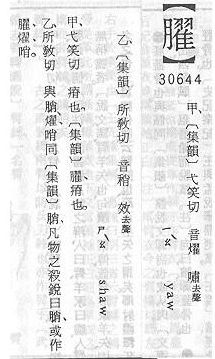 【】
30644
甲、〔集韻〕弋笑切 音燿 嘯去聲 ㄧㄠˋ yaw
乙、〔集韻〕所敎切 音稍 效去聲 ㄕㄠˋ shaw
甲、弋笑切 瘠也。〔集韻〕瘠也。
乙、所敎切 與燿哨同〔集韻〕凡物之殺銳曰或作
燿、哨。